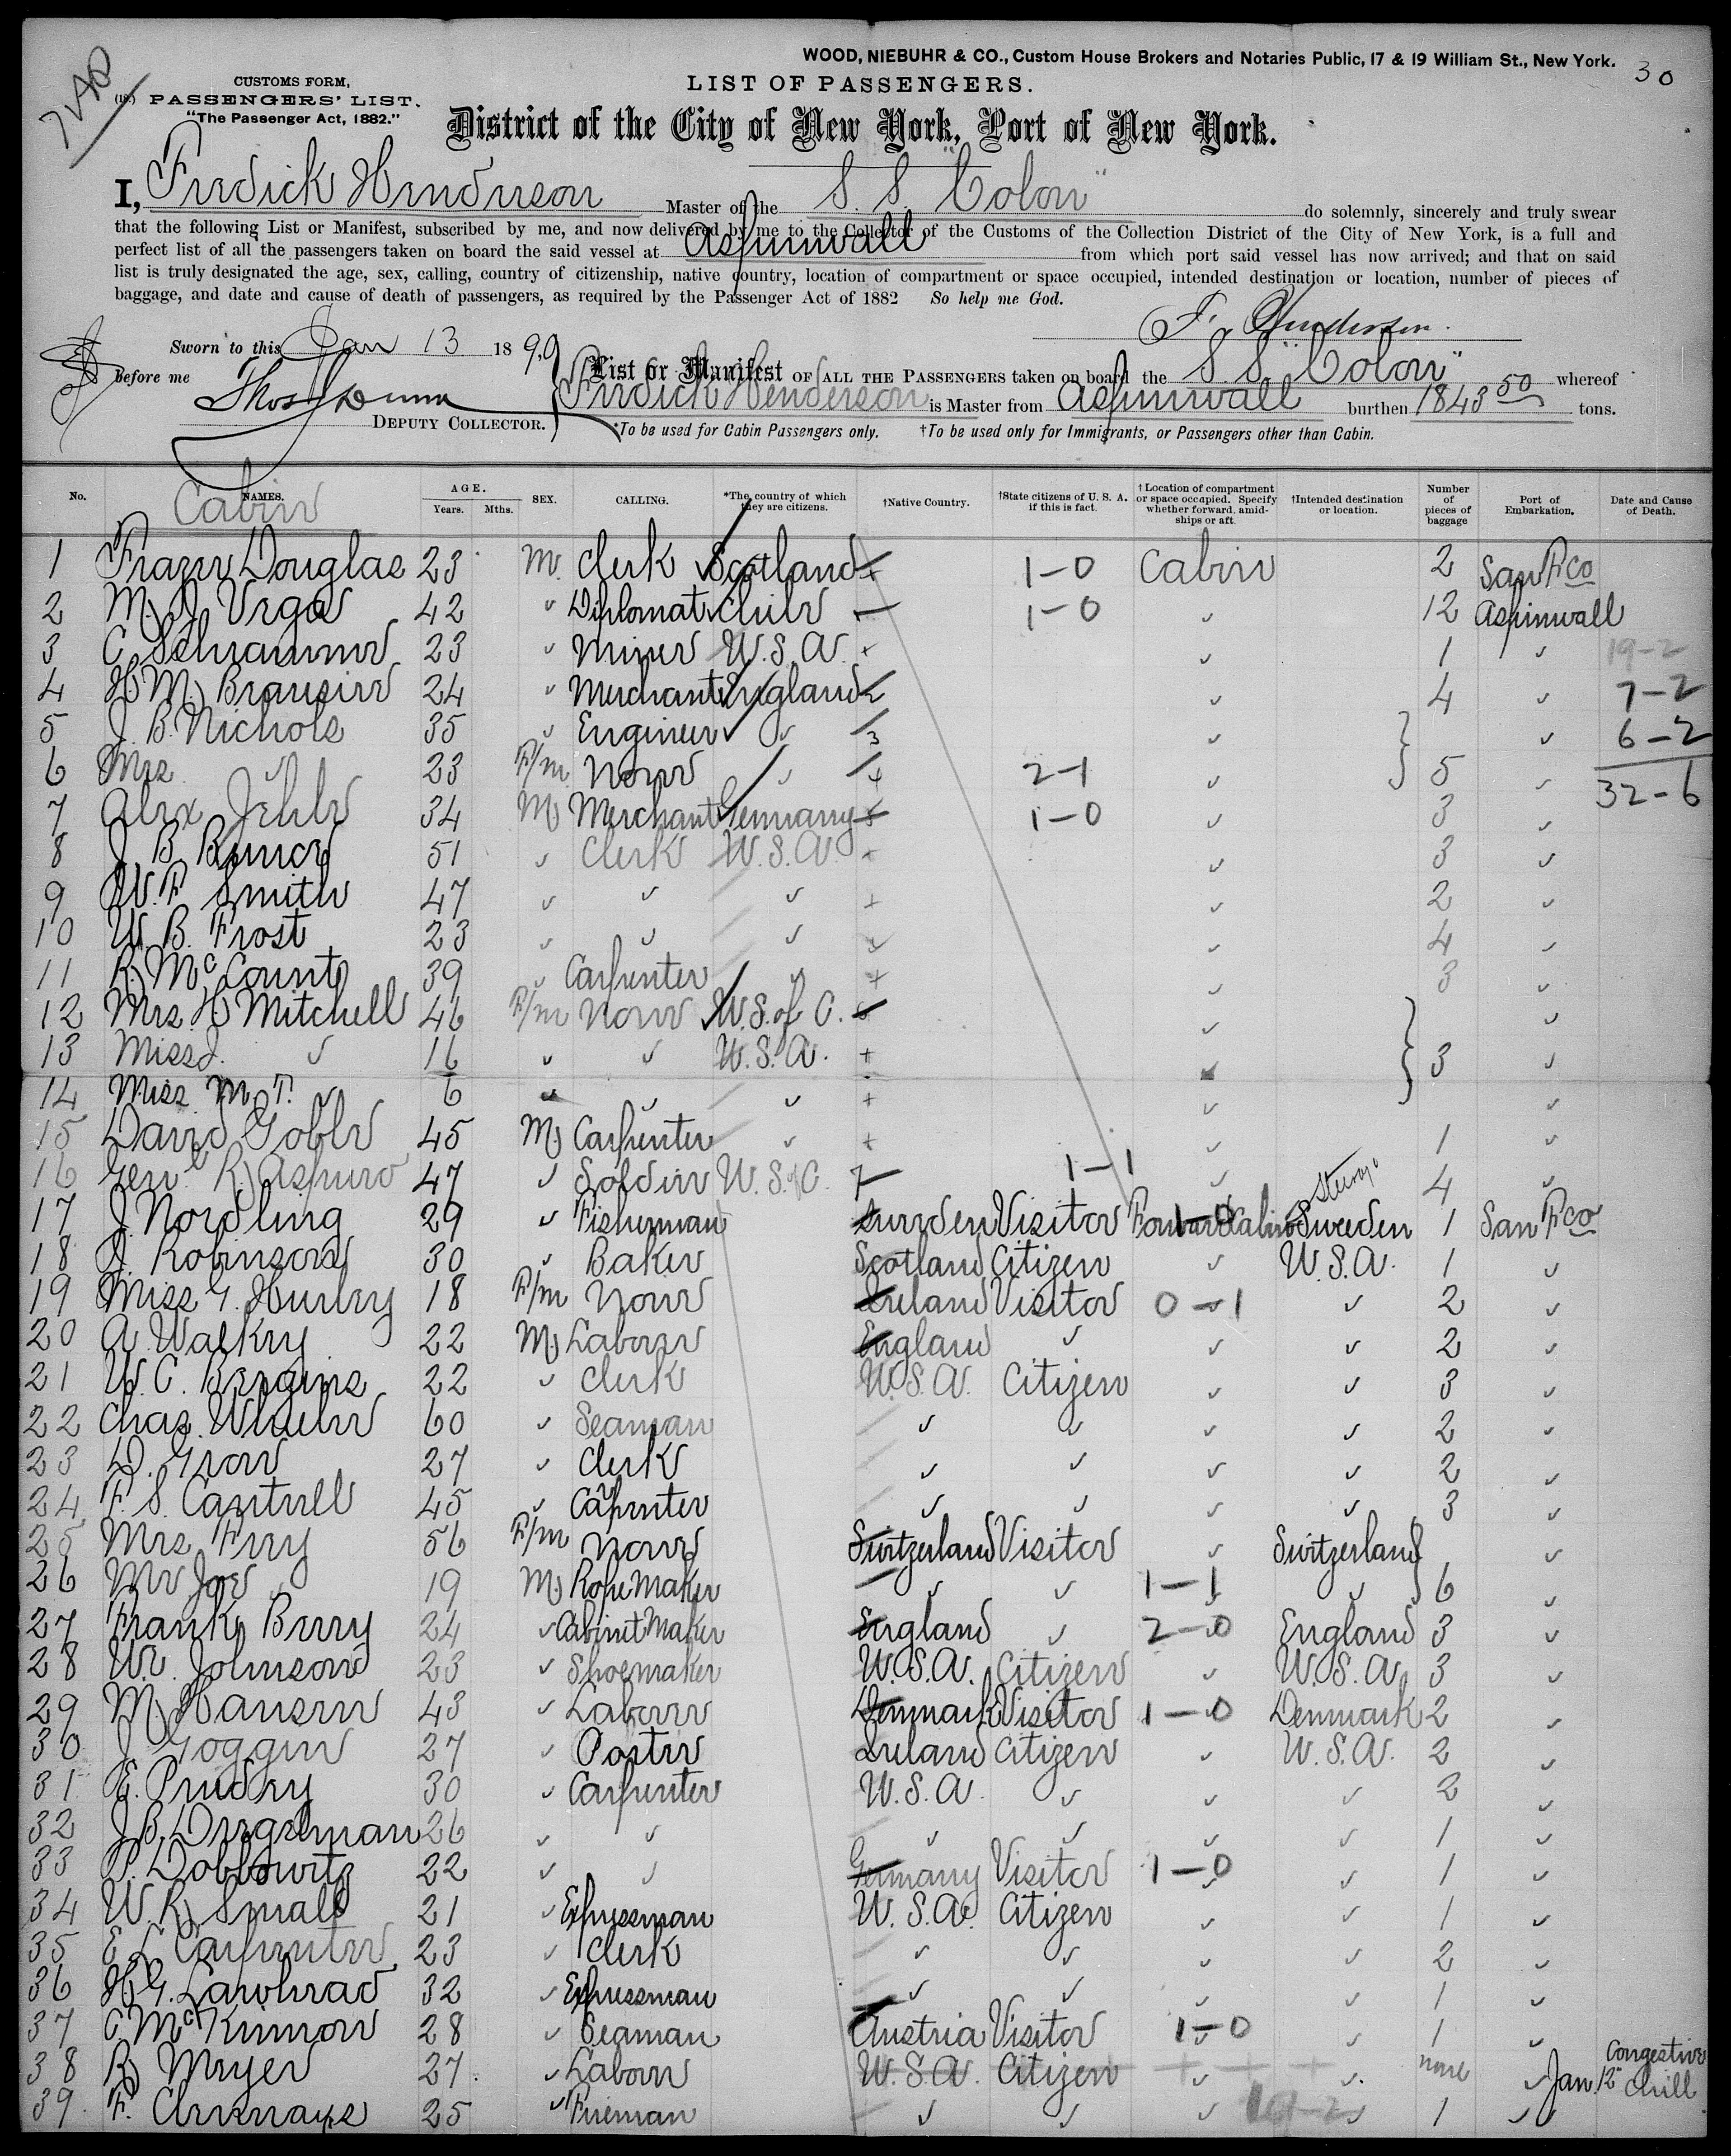 WOOD, NIEBUHR & CO., Custom House Brokers and Notaries Public, 17 & 19 William St., New York. 30
CUSTOMS FORM,
PASSENGERS' LIST.
"The Passenger Act, 1882."
LIST OF PASSENGERS.
District of the City of New York, Port of New York.
I, Fredick Henderson Master of the S. S. "Colon" do solemnly, sincerely and truly swear
that the following List or Manifest, subscribed by me, and now delivered by me to the Collector of the Customs of the Collection District of the City of New York, is a full and
perfect list of all the passengers taken on board the said vessel at Aspinwall from which port said vessel has now arrived; and that on said
list is truly designated the age, sex, calling, country of citizenship, native country, location of compartment or space occupied, intended destination or location, number of pieces of
baggage, and date and cause of death of passengers, as required by the Passenger Act of 1882 So help me God.
F. Henderson.
Sworn to this Jan 13 1890
Before me Thos Dunn
DEPUTY COLLECTOR.
List or Manifest OF ALL THE PASSENGERS taken on board the S. S. "Colon" whereof
Fredick Henderson is Master from Aspinwall burthen 1843 50 tons.
*To be used for Cabin Passengers only. †To be used only for Immigrants, or Passengers other than Cabin.
No. NAMES. AGE. Years. Mths. SEX. CALLING. *The country of which they are citizens. †Native Country. †State citizens of U. S. A. if this is fact. †Location of compartment or space occupied. Specify whether forward, amidships or aft. †Intended destination or location. Number of pieces of baggage Port of Embarkation. Date and Cause of Death.
Cabin
1 Frazer Douglas 23 M. Clerk Scotland 1-0 Cabin 2 San Fco
2 M. J. Vega 42 " Diplomat Chile 1-0 " 12 Aspinwall
3 C. Schrammer 23 " Miner U.S.A. + " 1 " 19-2
4 24 " Merchant England " 4 " 7-2
5 J. B. Nichols 35 " Engineer " 3 " " 6-2
6 Mrs " 23 F/m None " 4 2-1 " 5 " 32-6
7 Alex 34 M Merchant Germany 5 1-0 " 3 "
8 J. B. 51 " Clerk U.S.A. + " 3 "
9 W. F. Smith 47 " " " + " 2 "
10 W. B. Frost 23 " " " + " 4 "
11 R. McCount 39 " Carpenter " + " 3 "
12 Mrs. H Mitchell 46 F/m None U.S. of C. " "
13 Miss J. " 16 " " U.S.A. + " 3 "
14 Miss M. T. " 6 " " " + " "
15 David Goble 45 M Carpenter " + " 1 "
16 Genl R. Aspuro 47 " Soldier U.S. of C. 7 1-1 " 4 "
Steerage
17 J. Nordling 29 " Fisherman Sweden Visitor 1-0 Forward Cabin Sweden 1 San Fco
18 J. Robinson 30 " Baker Scotland Citizen " U.S.A. 1 "
19 Miss G. Hurley 18 F/m None Ireland Visitor 0-1 " 2 "
20 A. Walkry 22 M Laborer England " " " 2 "
21 W. C. 22 " Clerk U.S.A. Citizen " " 3 "
22 Chas. Wheeler 60 " Seaman " " " " 2 "
23 D. Grow 27 " Clerk " " " " 2 "
24 F. S. Cantrell 45 " Carpenter " " " " 3 "
25 Mrs Frey 56 F/m None Switzerland Visitor " Switzerland "
26 Mr Joe " 19 M Rope Maker " " 1-1 " 6 "
27 Frank Berry 24 " Cabinet Maker England " 2-0 England 3 "
28 Johnson 23 " Shoemaker U.S.A. Citizen " U.S.A. 3 "
29 M. Hansen 43 " Laborer Denmark Visitor 1-0 Denmark 2 "
30 J. Goggin 27 " Porter Ireland Citizen " U.S.A. 2 "
31 E. Pudry 30 " Carpenter U.S.A. " " " 2 "
32 J. B. Dregelman 26 " " " " " " 1 "
33 P. Dobbowitz 22 " " Germany Visitor 1-0 " 1 "
34 W. R. Small 21 " Expressman U.S.A. Citizen " " 1 "
35 E. L. Carpenter 23 " Clerk " " " " 2 "
36 H. G. Lawhead 32 " Expressman " " " " 1 "
37 C. McKinnon 28 " Seaman Austria Visitor 1-0 " 1 "
38 R. Meyer 27 " Laborer U.S.A. Citizen " " none " Jan 12" Congestive Chill
39 F. 25 " Fireman " " " 19-2 " 1 "